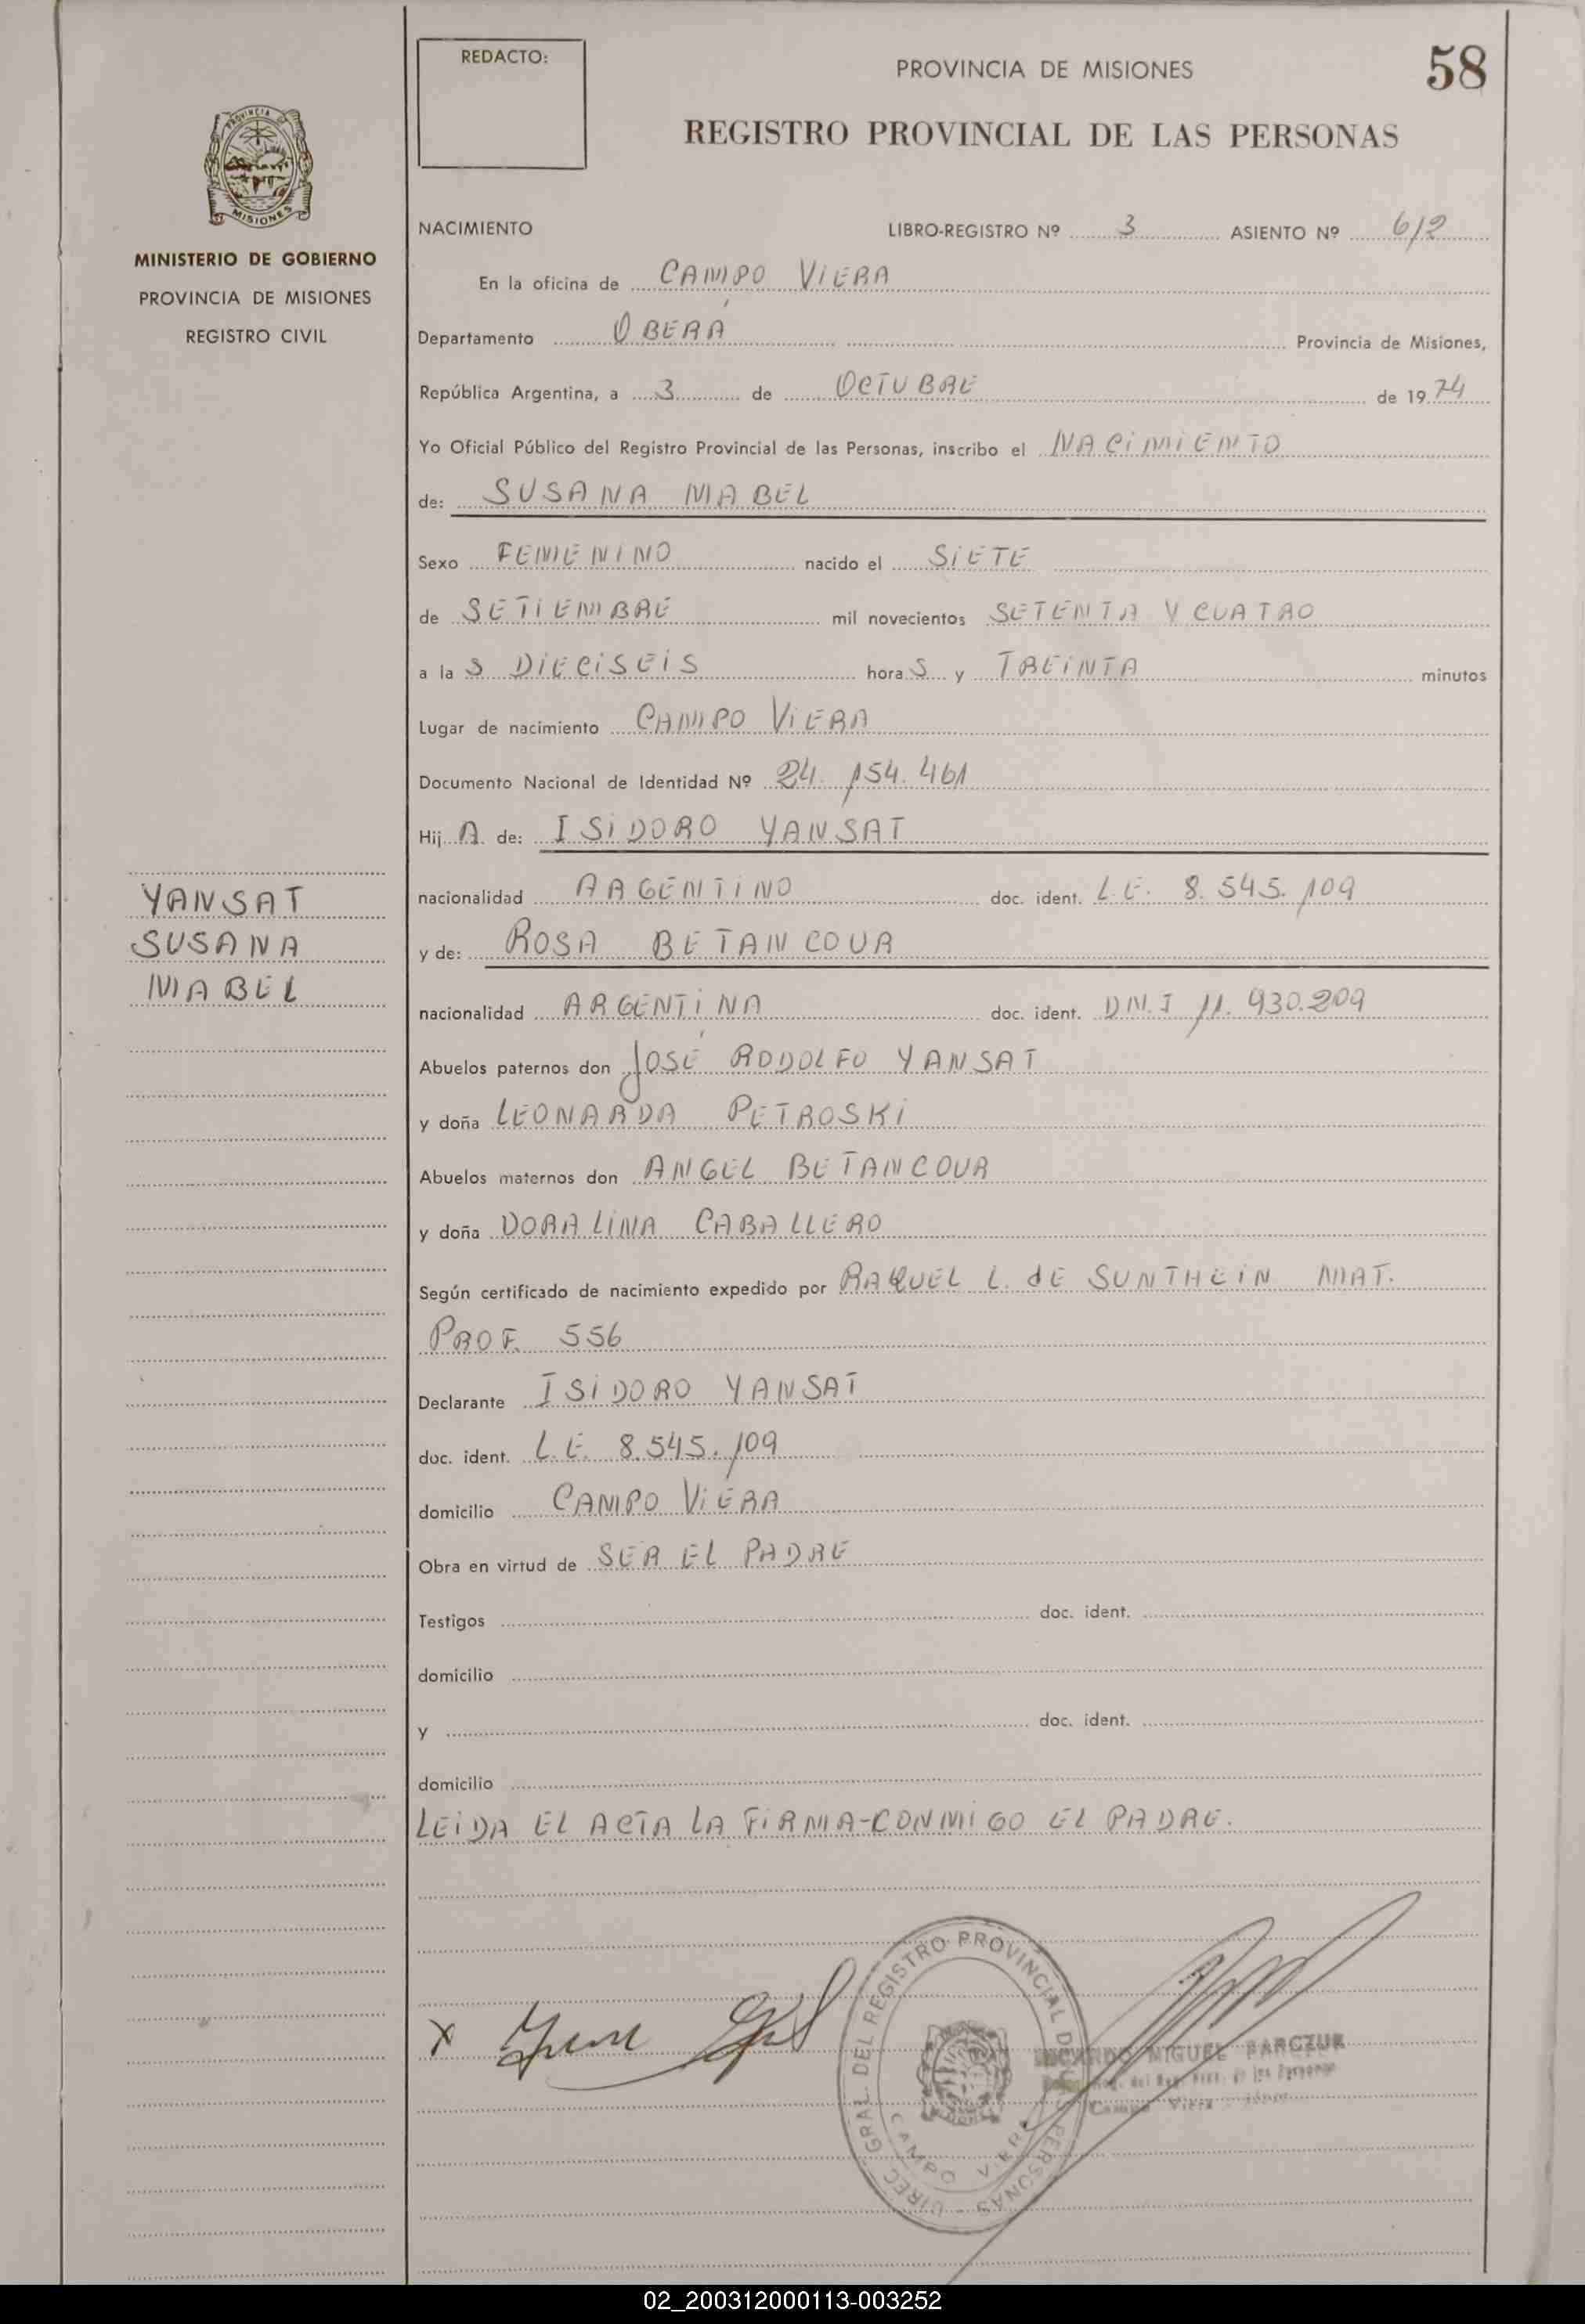 REDACTO:
PROVINCIA DE MISIONES
58
REGISTRO PROVINCIAL DE LAS PERSONAS
MISIONES
MINISTERIO DE GOBIERNO
PROVINCIA DE MISIONES
REGISTRO CIVIL
NACIMIENTO LIBRO-REGISTRO Nº 3 ASIENTO Nº 612
En la oficina de CAMPO VIERA
Departamento OBERÁ Provincia de Misiones,
República Argentina, a 3 de OCTUBRE de 1974
Yo Oficial Público del Registro Provincial de las Personas, inscribo el NACIMIENTO
de: SUSANA MABEL
Sexo FEMENINO nacido el SIETE
de SETIEMBRE mil novecientos SETENTA Y CUATRO
a la S DIECISEIS hora S y TREINTA minutos
Lugar de nacimiento CAMPO VIERA
Documento Nacional de Identidad Nº 24.154.461
Hij A de: ISIDORO YANSAT
nacionalidad ARGENTINO doc. ident. L.E. 8.545.109
y de: ROSA BETANCOUR
nacionalidad ARGENTINA doc. ident. DN.I 11.930.209
YANSAT
SUSANA
MABEL
Abuelos paternos don JOSÉ RODOLFO YANSAT
y doña LEONARDA PETROSKI
Abuelos maternos don ANGEL BETANCOUR
y doña DORALINA CABALLERO
Según certificado de nacimiento expedido por RAQUEL L. dE SUNTHEIN MAT.
PROF. 556
Declarante ISIDORO YANSAT
doc. ident. L.E. 8.545.109
domicilio CAMPO VIERA
Obra en virtud de SER EL PADRE
Testigos doc. ident.
domicilio
y doc. ident.
domicilio
LEIDA EL ACTA LA FIRMA-CONMIGO EL PADRE.
DIREC. GRAL. DEL REGISTRO PROVINCIAL DE PERSONAS
CAMPO VIERA
X
MIGUEL BARCZUK
Campo Viera
02_200312000113-003252